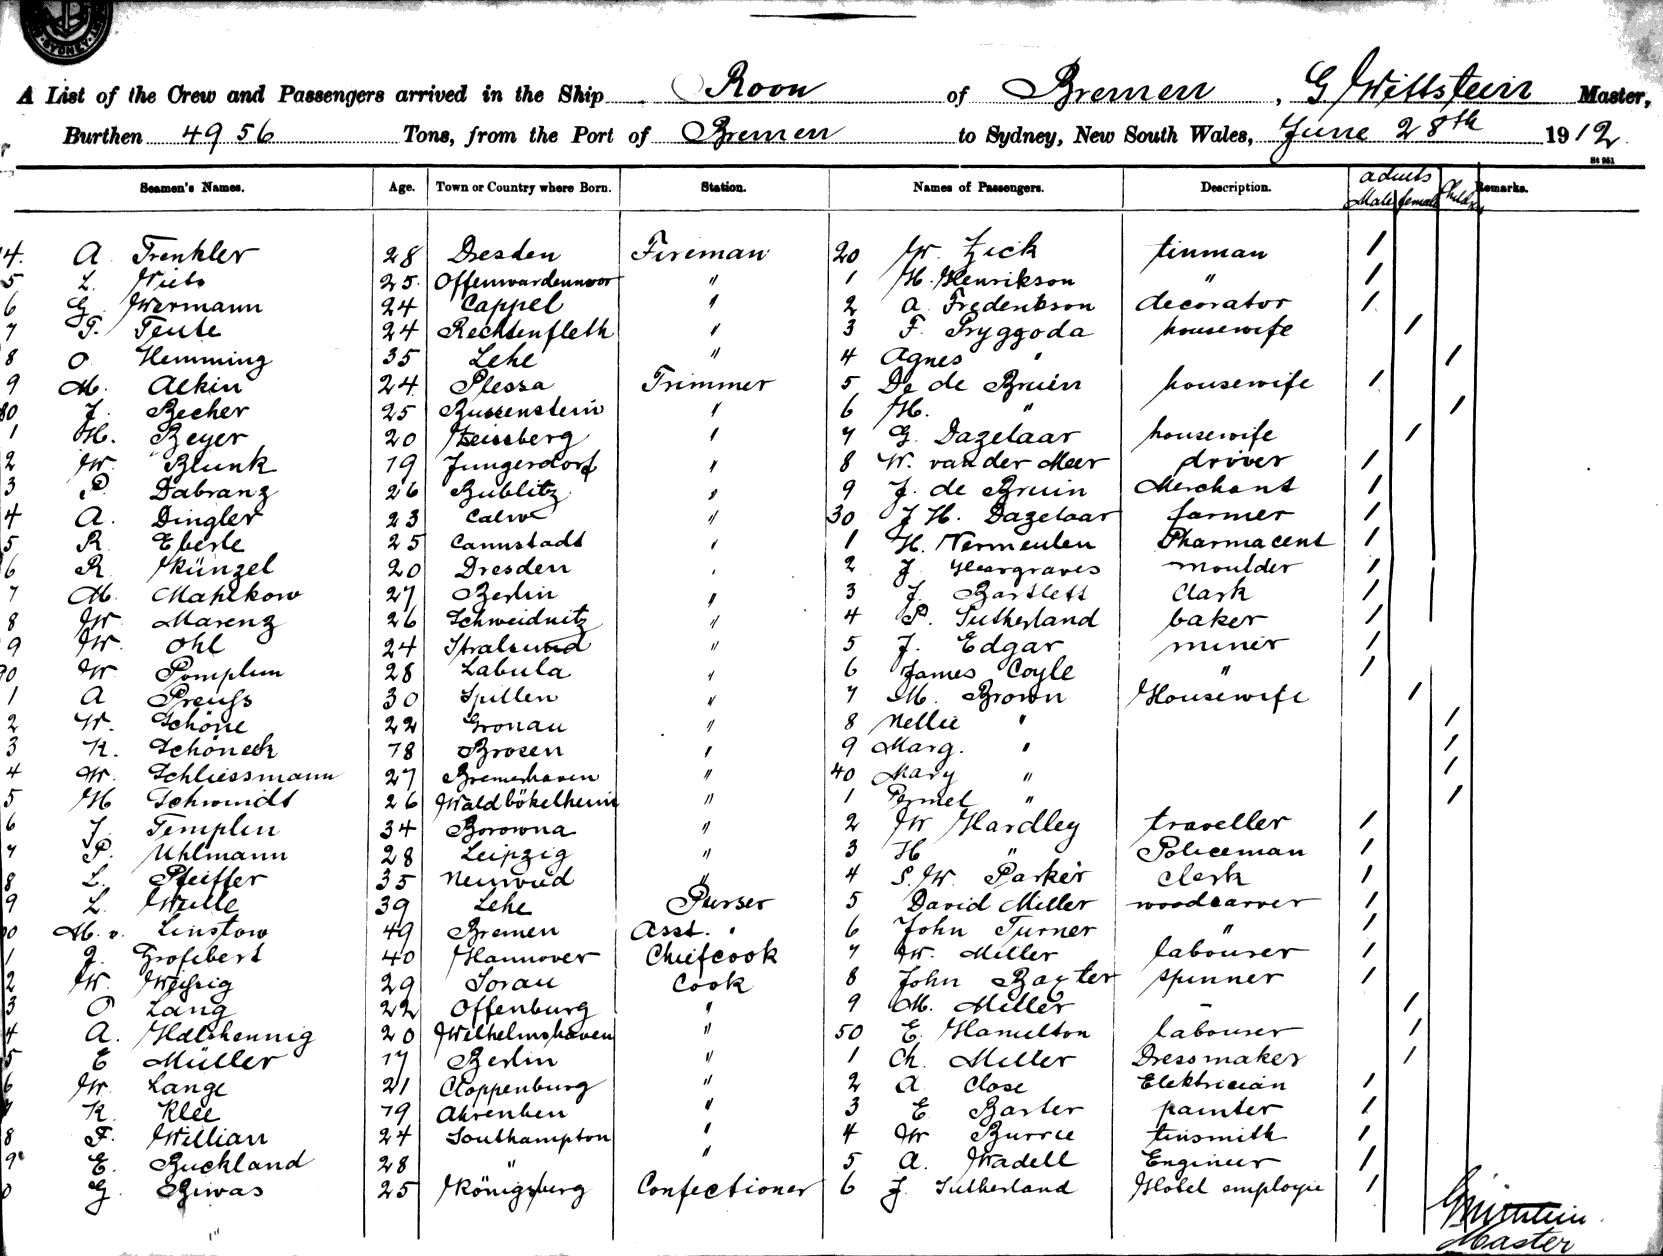 SYDNEY
A List of the Crew and Passengers arrived in the Ship Roon of Bremen, G Wittstein Master,
Burthen 4956 Tons, from the Port of Bremen to Sydney, New South Wales, June 28th 1912.
St 951
Seamen's Names. Age. Town or Country where Born. Station. Names of Passengers. Description. adults Male female Children Remarks.
4. A Trenkler 28 Dresden Fireman 20 W. Zick tinman /
5 L. 25 " 1 H. Henrikson " /
6 G. Wermann 24 Cappel " 2 A. Frederikson decorator /
7 F. Teute 24 Rechtenfleth " 3 F. Pryggoda housewife /
8 O Hemming 35 Lehe " 4 Agnes " /
9 M. Aekin 24 Plessa Trimmer 5 De de Bruin housewife /
80 J. Becher 25 Bussenstein " 6 H. " /
1 H. Beyer 20 " 7 G. Dazelaar housewife /
2 W. Blunk 19 Jungerdorf " 8 W. van der Meer driver /
3 P. Dabranz 26 Bublitz " 9 J. de Bruin Merchant /
4 A. Dingler 23 Calw " 30 J H. Dazelaar farmer /
5 R. Eberle 25 Cannstadt " 1 H. Vermeulen Pharmacent /
6 R Künzel 20 Dresden " 2 J. Heargraves moulder /
7 M. Mahlkow 27 Berlin " 3 J. Bartlett Clark /
8 W. Marenz 26 Schweidnitz " 4 P. Sutherland baker /
9 W. Ohl 24 Stralsund " 5 J. Edgar miner /
90 W Pomplun 28 Labula " 6 James Coyle " /
1 A Preuss 30 Spillen " 7 M. Brown Housewife /
2 W. Schöne 22 Gronau " 8 Nellie " /
3 K. Schöneck 18 Brosen " 9 Marg. " /
4 W. Schliessmann 27 Bremerhaven " 40 Mary " /
5 H Schmidt 26 Waldbökelheim " 1 " /
6 J. Templin 34 Borowna " 2 W Hardley traveller /
7 P. Uhlmann 28 Leipzig " 3 H " Policeman /
8 L. Pfeiffer 35 Neuwied " 4 S. W. Parker Clerk /
9 L. Wulle 39 Lehe Purser 5 David Miller woodcarver /
00 M. v. Linstow 49 Bremen Asst. " 6 John Turner " /
1 J. Grofebert 40 Hannover Chiefcook 7 W. Miller labourer /
2 W. 29 Sorau Cook 8 John Baxter spinner /
3 O Lang 22 Offenburg " 9 M. Miller - /
4 A. Halshennig 20 Wilhelmshaven " 50 E. Hamilton labourer /
5 E Müller 17 Berlin " 1 Ch. Miller Dressmaker /
6 W. Lange 21 Cloppenburg " 2 A Close Elektrician /
7 K. Klee 19 Ahrenhen " 3 E Barter painter /
8 F. Willian 24 Southampton " 4 W Burrie tinsmith /
9 E. Buckland 28 " " 5 A. Wadell Engineer /
0 G. Biwas 25 Königsberg Confectioner 6 J. Sutherland Hotel employie /
G Wittstein
Master